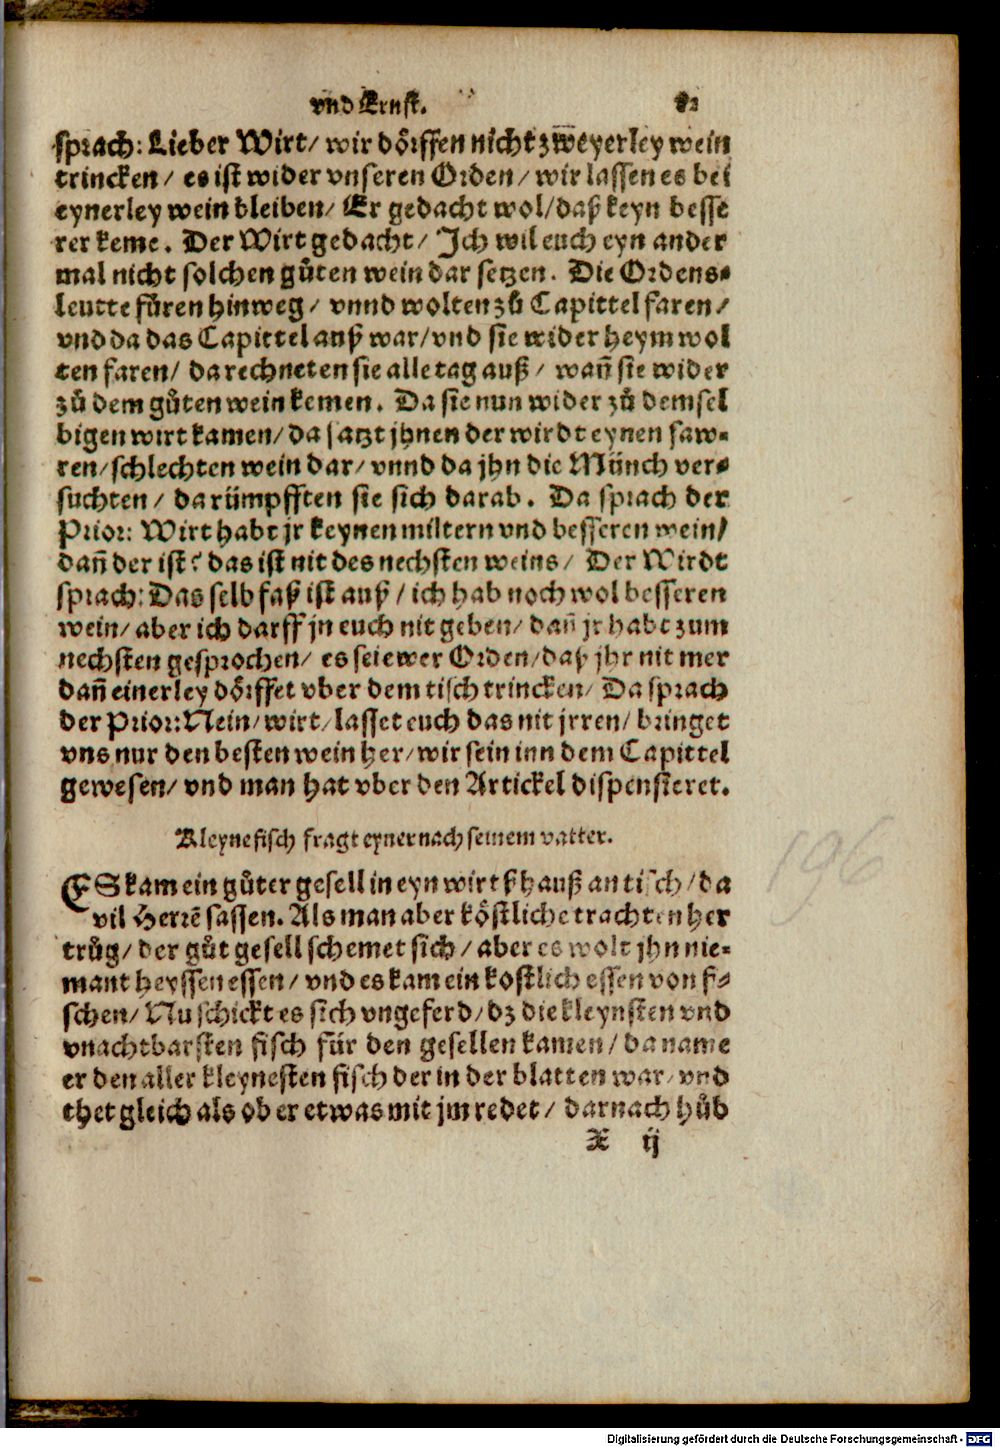 vnd Ernst. 82
sprach: Lieber Wirt/ wir doͤrffen nicht zweyerley wein
trincken/ es ist wider vnseren Orden/ wir lassen es bei
eynerley wein bleiben/ Er gedacht wol/daß keyn besse
rer keme. Der Wirt gedacht/ Ich wil euch eyn ander
mal nicht solchen guͦten wein dar setzen. Die Ordens⸗
leutte fuͦren hinweg/ vnnd wolten zuͦ Capittel faren/
vnd da das Capittel auß war/vnd sie wider heym wol
ten faren/ da rechneten sie alle tag auß/ wañ sie wider
zuͦ dem guͦten wein kemen. Da sie nun wider zuͦ demsel
bigen wirt kamen/da satzt jhnen der wirdt eynen saw⸗
ren/schlechten wein dar/ vnnd da jhn die Muͤnch ver⸗
suchten/ da ruͤmpfften sie sich darab. Da sprach der
Prior: Wirt habt jr keynen miltern vnd besseren wein/
dañ der ist? das ist nit des nechsten weins/ Der Wirdt
sprach: Das selb faß ist auß/ ich hab noch wol besseren
wein/ aber ich darff jn euch nit geben/ dañ jr habt zum
nechsten gesprochen/ es sei ewer Orden/daß jhr nit mer
dañ einerley doͤrffet vber dem tisch trincken/ Da sprach
der Prior: Nein/ wirt/ lasset euch das nit jrren/ bringet
vns nur den besten wein her/ wir sein inn dem Capittel
gewesen/ vnd man hat vber den Artickel dispensieret.
Kleyne fisch fragt eyner nach seinem vatter.
ES kam ein guͦter gesell in eyn wirtßhauß an tisch/da
vil Herrē sassen. Als man aber koͤstliche trachten her
truͦg/ der guͦt gesell schemet sich/ aber es wolt jhn nie⸗
mant heyssen essen/ vnd es kam ein kostlich essen von fi⸗
schen/ Nu schickt es sich vngeferd/ dz die kleynsten vnd
vnachtbarsten fisch fuͤr den gesellen kamen/ da name
er den aller kleynesten fisch der in der blatten war/ vnd
thet gleich als ob er etwas mit jm redet/ darnach huͦb
X ij
196
Digitalisierung gefördert durch die Deutsche Forschungsgemeinschaft - DFG